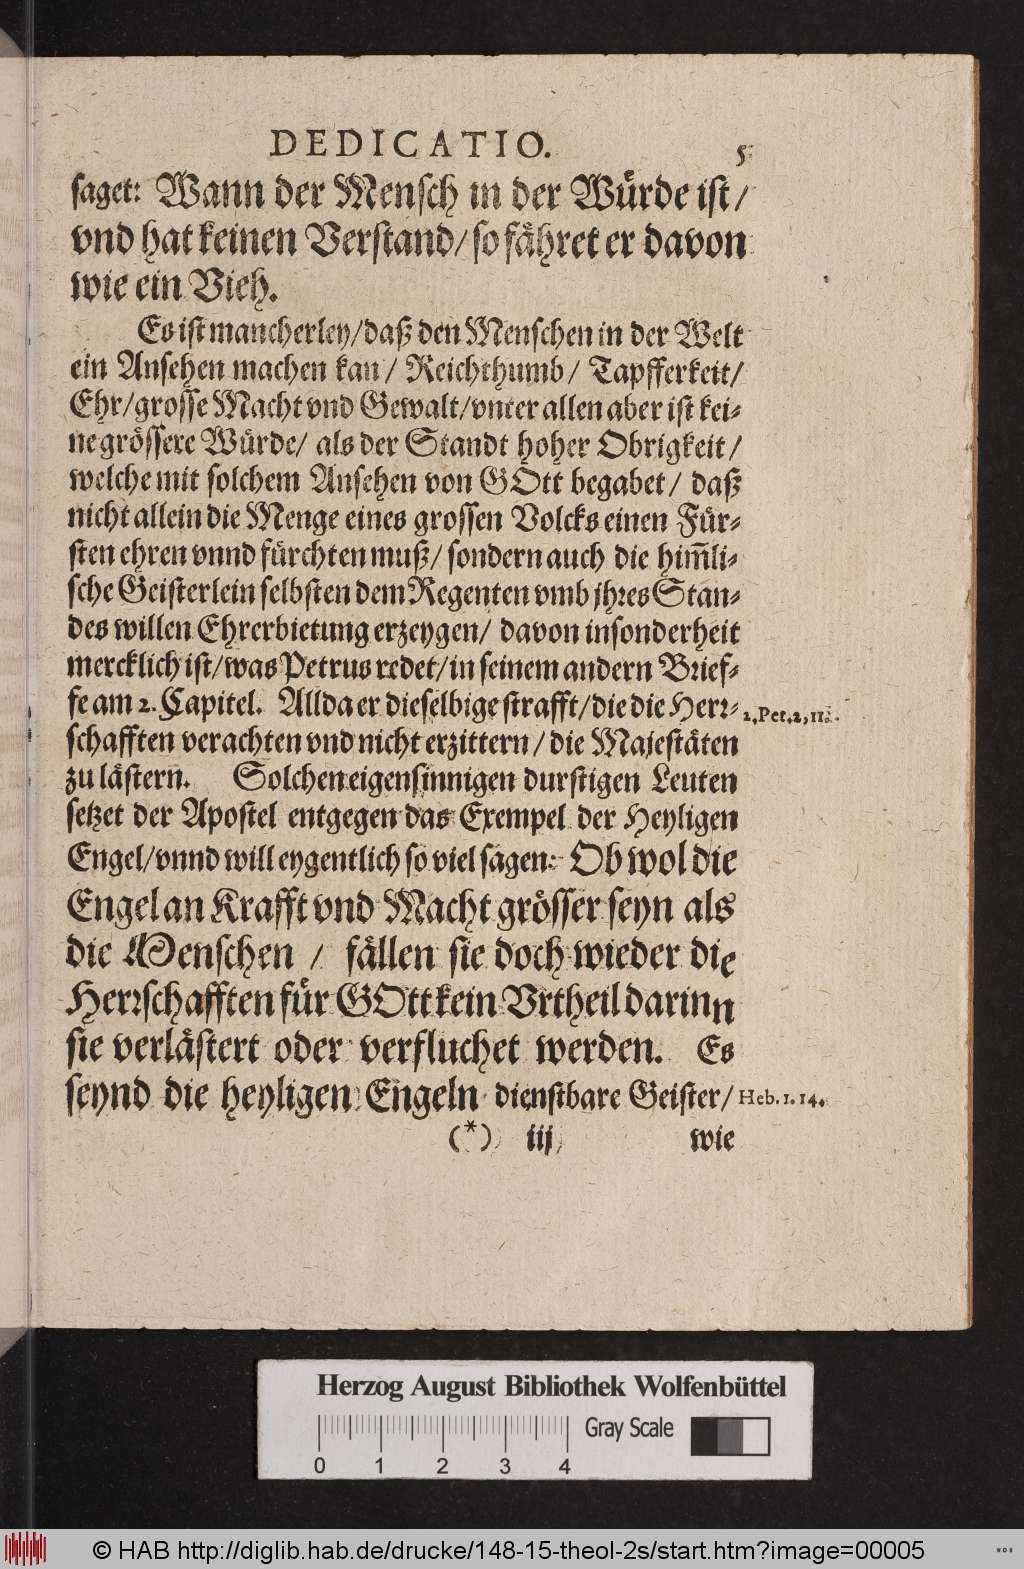 DEDICATIO. 5
saget: Wann der Mensch in der Würde ist/
vnd hat keinen Verstand/so fähret er davon
wie ein Vieh.
Es ist mancherley/daß den Menschen in der Welt
ein Ansehen machen kan/ Reichthumb/ Tapfferkeit/
Ehr/grosse Macht vnd Gewalt/vnter allen aber ist kei-
ne grössere Würde/ als der Standt hoher Obrigkeit/
welche mit solchem Ansehen von GOtt begabet/ daß
nicht allein die Menge eines grossen Volcks einen Für-
sten ehren vnnd fürchten muß/ sondern auch die him̃li-
sche Geisterlein selbsten dem Regenten vmb jhres Stan-
des willen Ehrerbietung erzeygen/ davon insonderheit
mercklich ist/was Petrus redet/in seinem andern Brief-
fe am 2. Capitel. Allda er dieselbige strafft/die die Herr- 2. Pet. 2, 11.
schafften verachten vnd nicht erzittern/die Majestäten
zu lästern. Solchen eigensinnigen durstigen Leuten
setzet der Apostel entgegen das Exempel der Heyligen
Engel/vnnd will eygentlich so viel sagen: Ob wol die
Engel an Krafft vnd Macht grösser seyn als
die Menschen / fällen sie doch wieder die
Herrschafften für GOtt kein Vrtheil darinn
sie verlästert oder verfluchet werden. Es
seynd die heyligen Engeln dienstbare Geister/ Heb. 1. 14.
(*) iij wie
Herzog August Bibliothek Wolfenbüttel
Gray Scale
0 1 2 3 4
© HAB http://diglib.hab.de/drucke/148-15-theol-2s/start.htm?image=00005